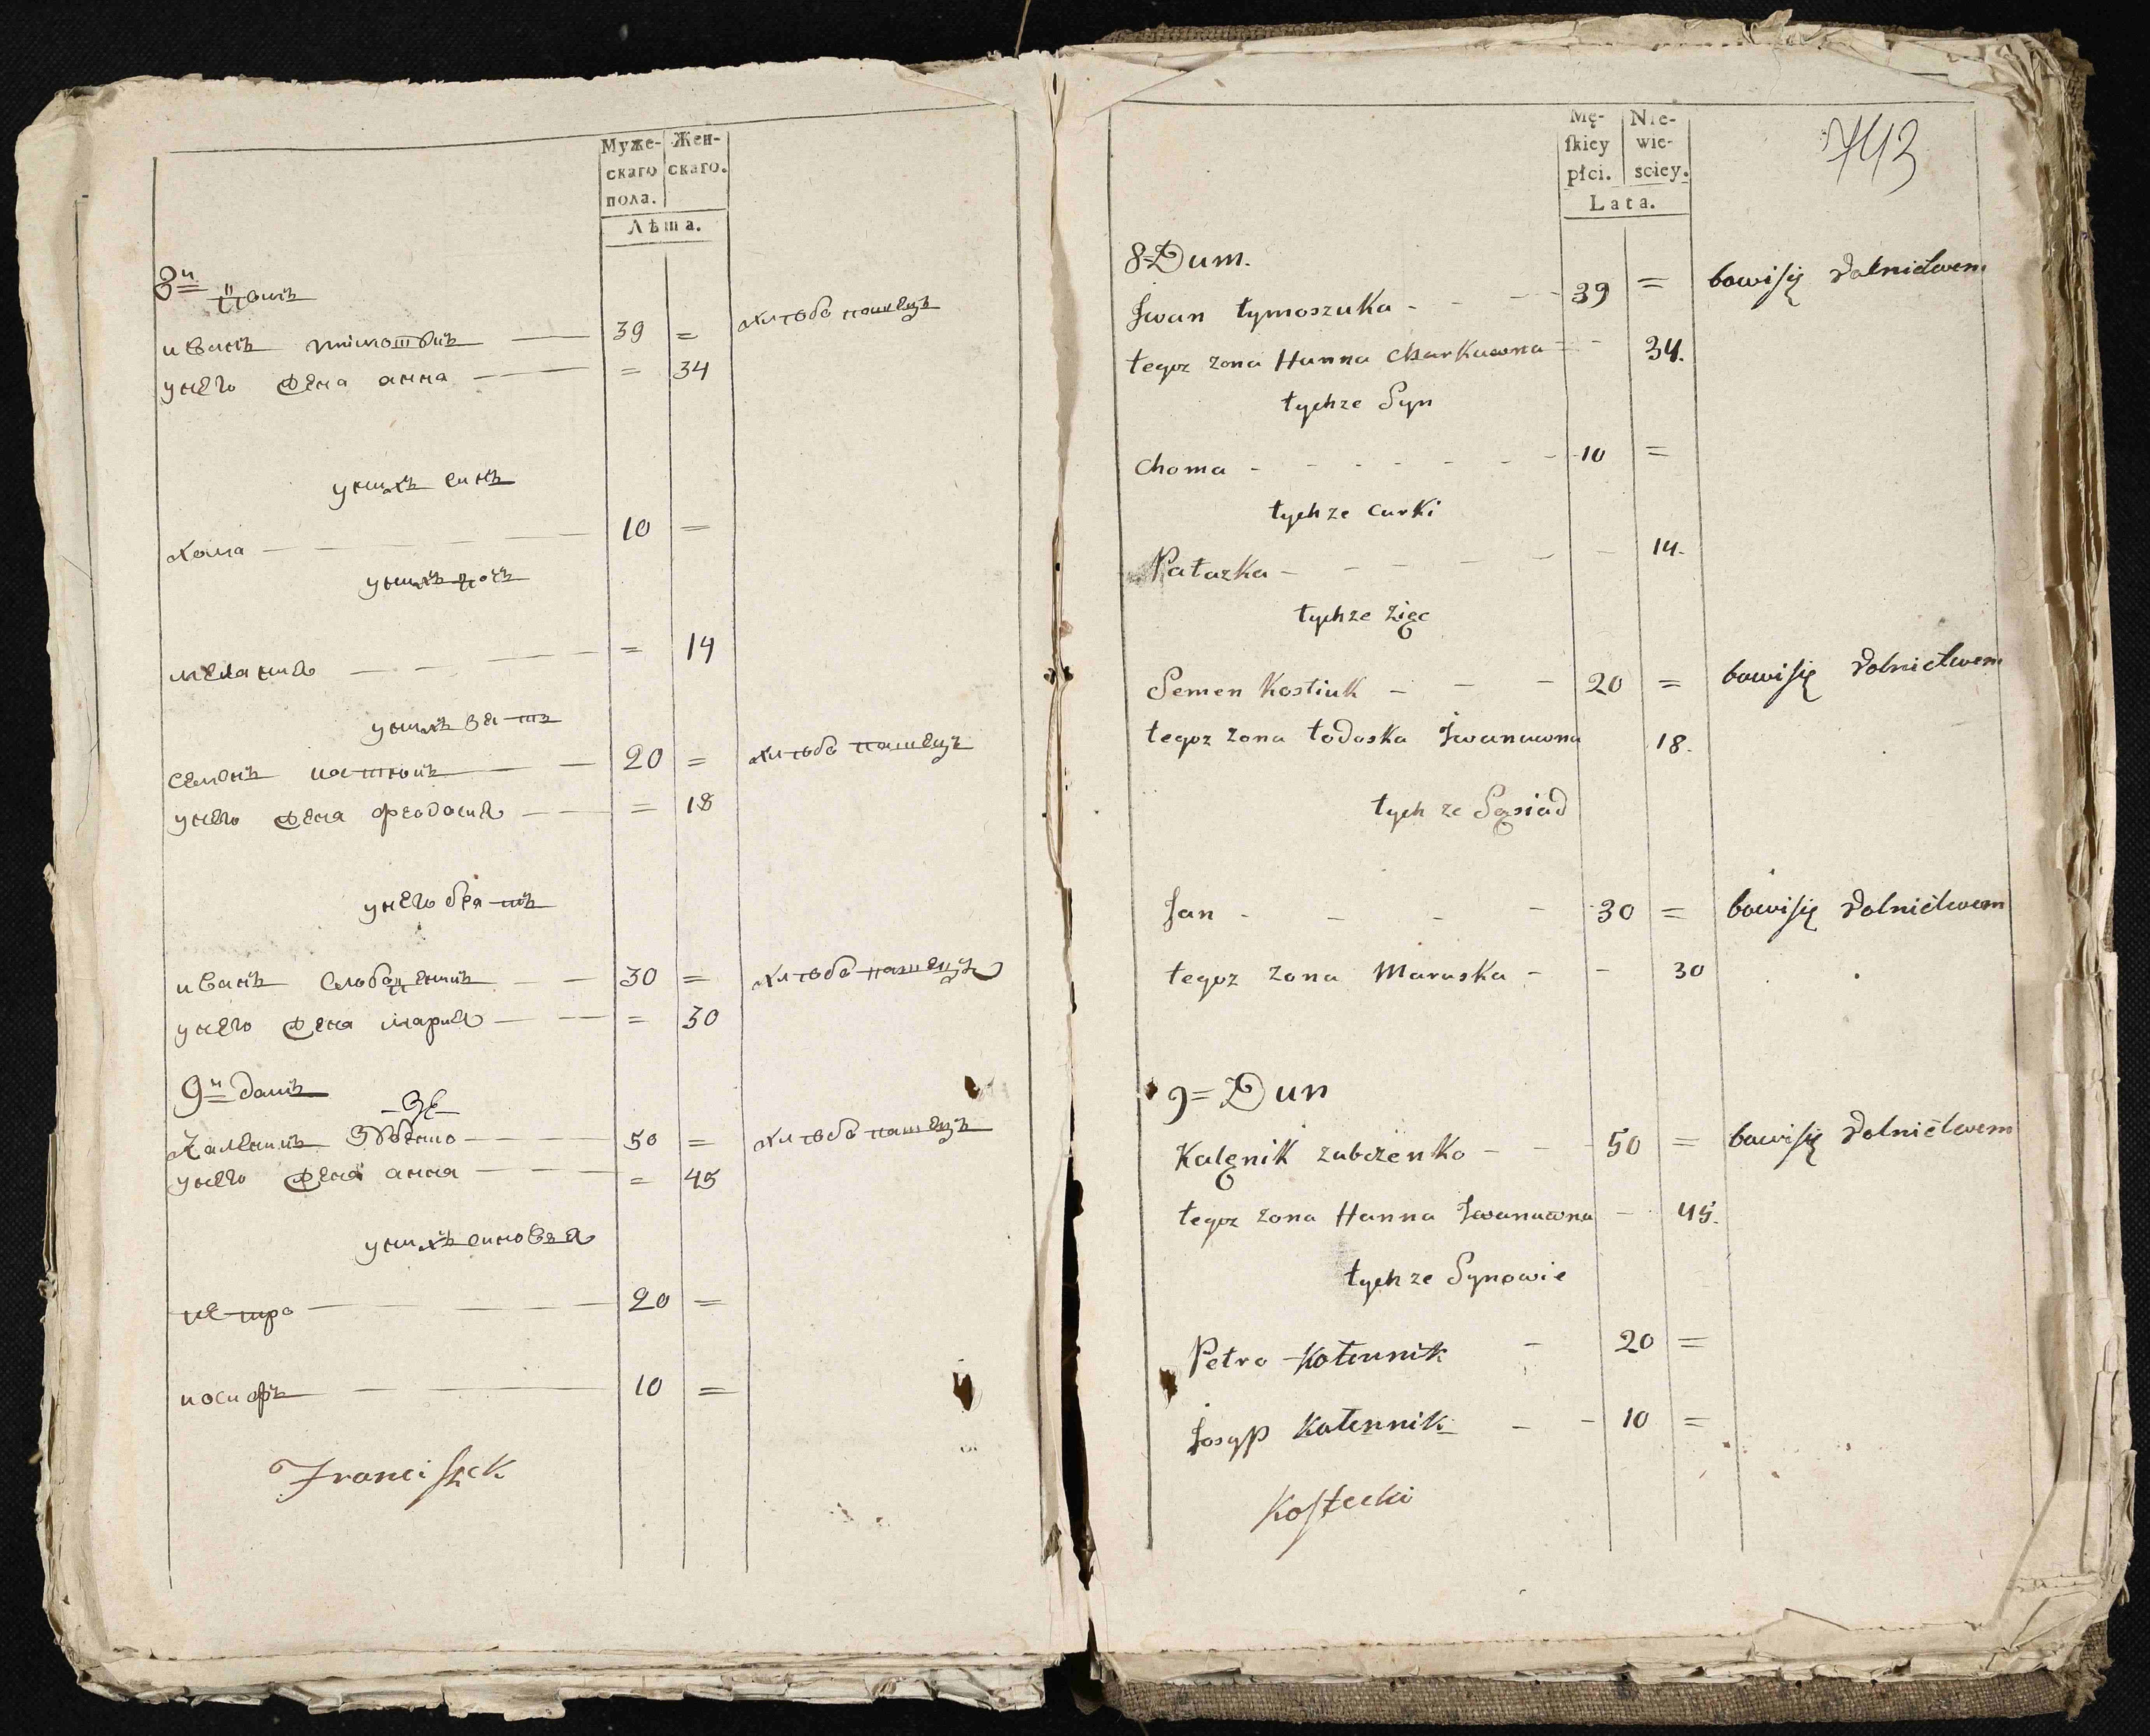 Муже-
скаго
пола.
Жен-
скаго.
Лѣта.
8й домъ
иванъ тимошукъ 39 = хлебо пашецъ
унего жена анна = 34
унихъ синъ
хома 10 =
унихъ доч
мелания = 14
унихъ зять
семенъ костюкъ 20 = хлебо пашецъ
унего жена феодосия = 18
унего братъ
иванъ 30 = хлебо пашецъ
унего жена мария = 30
9й домъ
каленикъ 50 = хлебо пашецъ
унего жена анна = 45
унихъ синовья
петро 20 =
иосифъ 10 =
Franciszek
Mę-
skiey
płci.
Nie-
wie-
sciey.
Lata.
743
8=Dum.
Jwan tymoszuka 39 = bawi się Rolnictwem
tegoz zona Hanna Charkuwna 34.
tychze Syn
Choma 10 =
tychze curki
Pałazka 14.
tychze zięc
Semen Kostiuk 20 = bawi się Rolnictwem
tegoz zona todoska Jwanuwna 18.
tych ze Sąsiad
Jan 30 = bawi się Rolnictwem
tegoz zona Maruska 30
9=Dun
Kalęnik zubczenko 50 = bawi się Rolnictwem
tegoz zona Hanna Jwanuwna 45.
tychze Synowie
Petro 20 =
Josyp 10 =
Kostecki